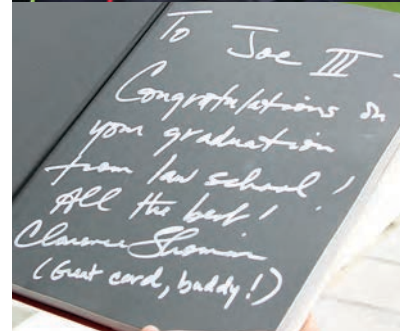 To Joe III -
Congratulations on
your graduation
from law school!
All the best!
Clarence Thomas
(Great card, buddy!)